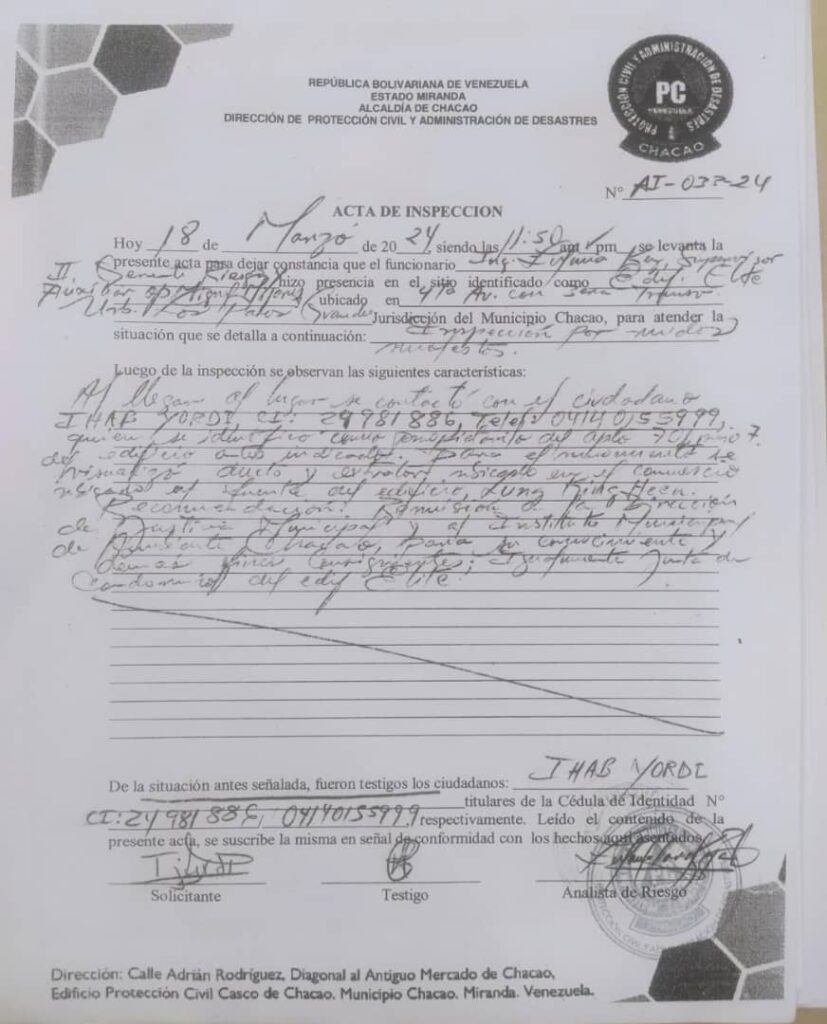 REPÚBLICA BOLIVARIANA DE VENEZUELA
ESTADO MIRANDA
ALCALDÍA DE CHACAO
DIRECCIÓN DE PROTECCIÓN CIVIL Y ADMINISTRACIÓN DE DESASTRES
PROTECCIÓN CIVIL Y ADMINISTRACIÓN DE DESASTRES
PC
VENEZUELA
CHACAO
N° AI-03 -24
ACTA DE INSPECCION
Hoy 18 de Marzo de 2024, siendo las 11:50 am/pm se levanta la
presente acta para dejar constancia que el funcionario Ing. Supervisor
II hizo presencia en el sitio identificado como Edif. Elite
Auxiliar ubicado en 4ta Av. con 3era Transv.
Urb. Los Palos Grandes Jurisdicción del Municipio Chacao, para atender la
situación que se detalla a continuación: Inspección por ruidos
molestos.
Luego de la inspección se observan las siguientes características:
Al llegar al lugar se contactó con el ciudadano
IHAB YORDI, CI: 24981886, Telef: 04140155999,
quien se identifico como propietario del apto 701, piso 7.
del edificio antes indicado. Para el momento se
visualizó ducto y extractor ubicado en el comercio
ubicado al frente del edificio, Lung King Heen.
Recomendación: Remisión a la Dirección
de Justicia Municipal y al Instituto Municipal
de Ambiente Chacao, para su conocimiento y
demas fines consiguientes; Igualmente Junta de
Condominio del edif Elite.
De la situación antes señalada, fueron testigos los ciudadanos: IHAB YORDI
titulares de la Cédula de Identidad N°
CI: 24 981 886, 04140155999 respectivamente. Leído el contenido de la
presente acta, se suscribe la misma en señal de conformidad con los hechos aquí asentados
Solicitante
Testigo
Analista de Riesgo
Dirección: Calle Adrián Rodríguez, Diagonal al Antiguo Mercado de Chacao,
Edificio Protección Civil Casco de Chacao. Municipio Chacao. Miranda. Venezuela.